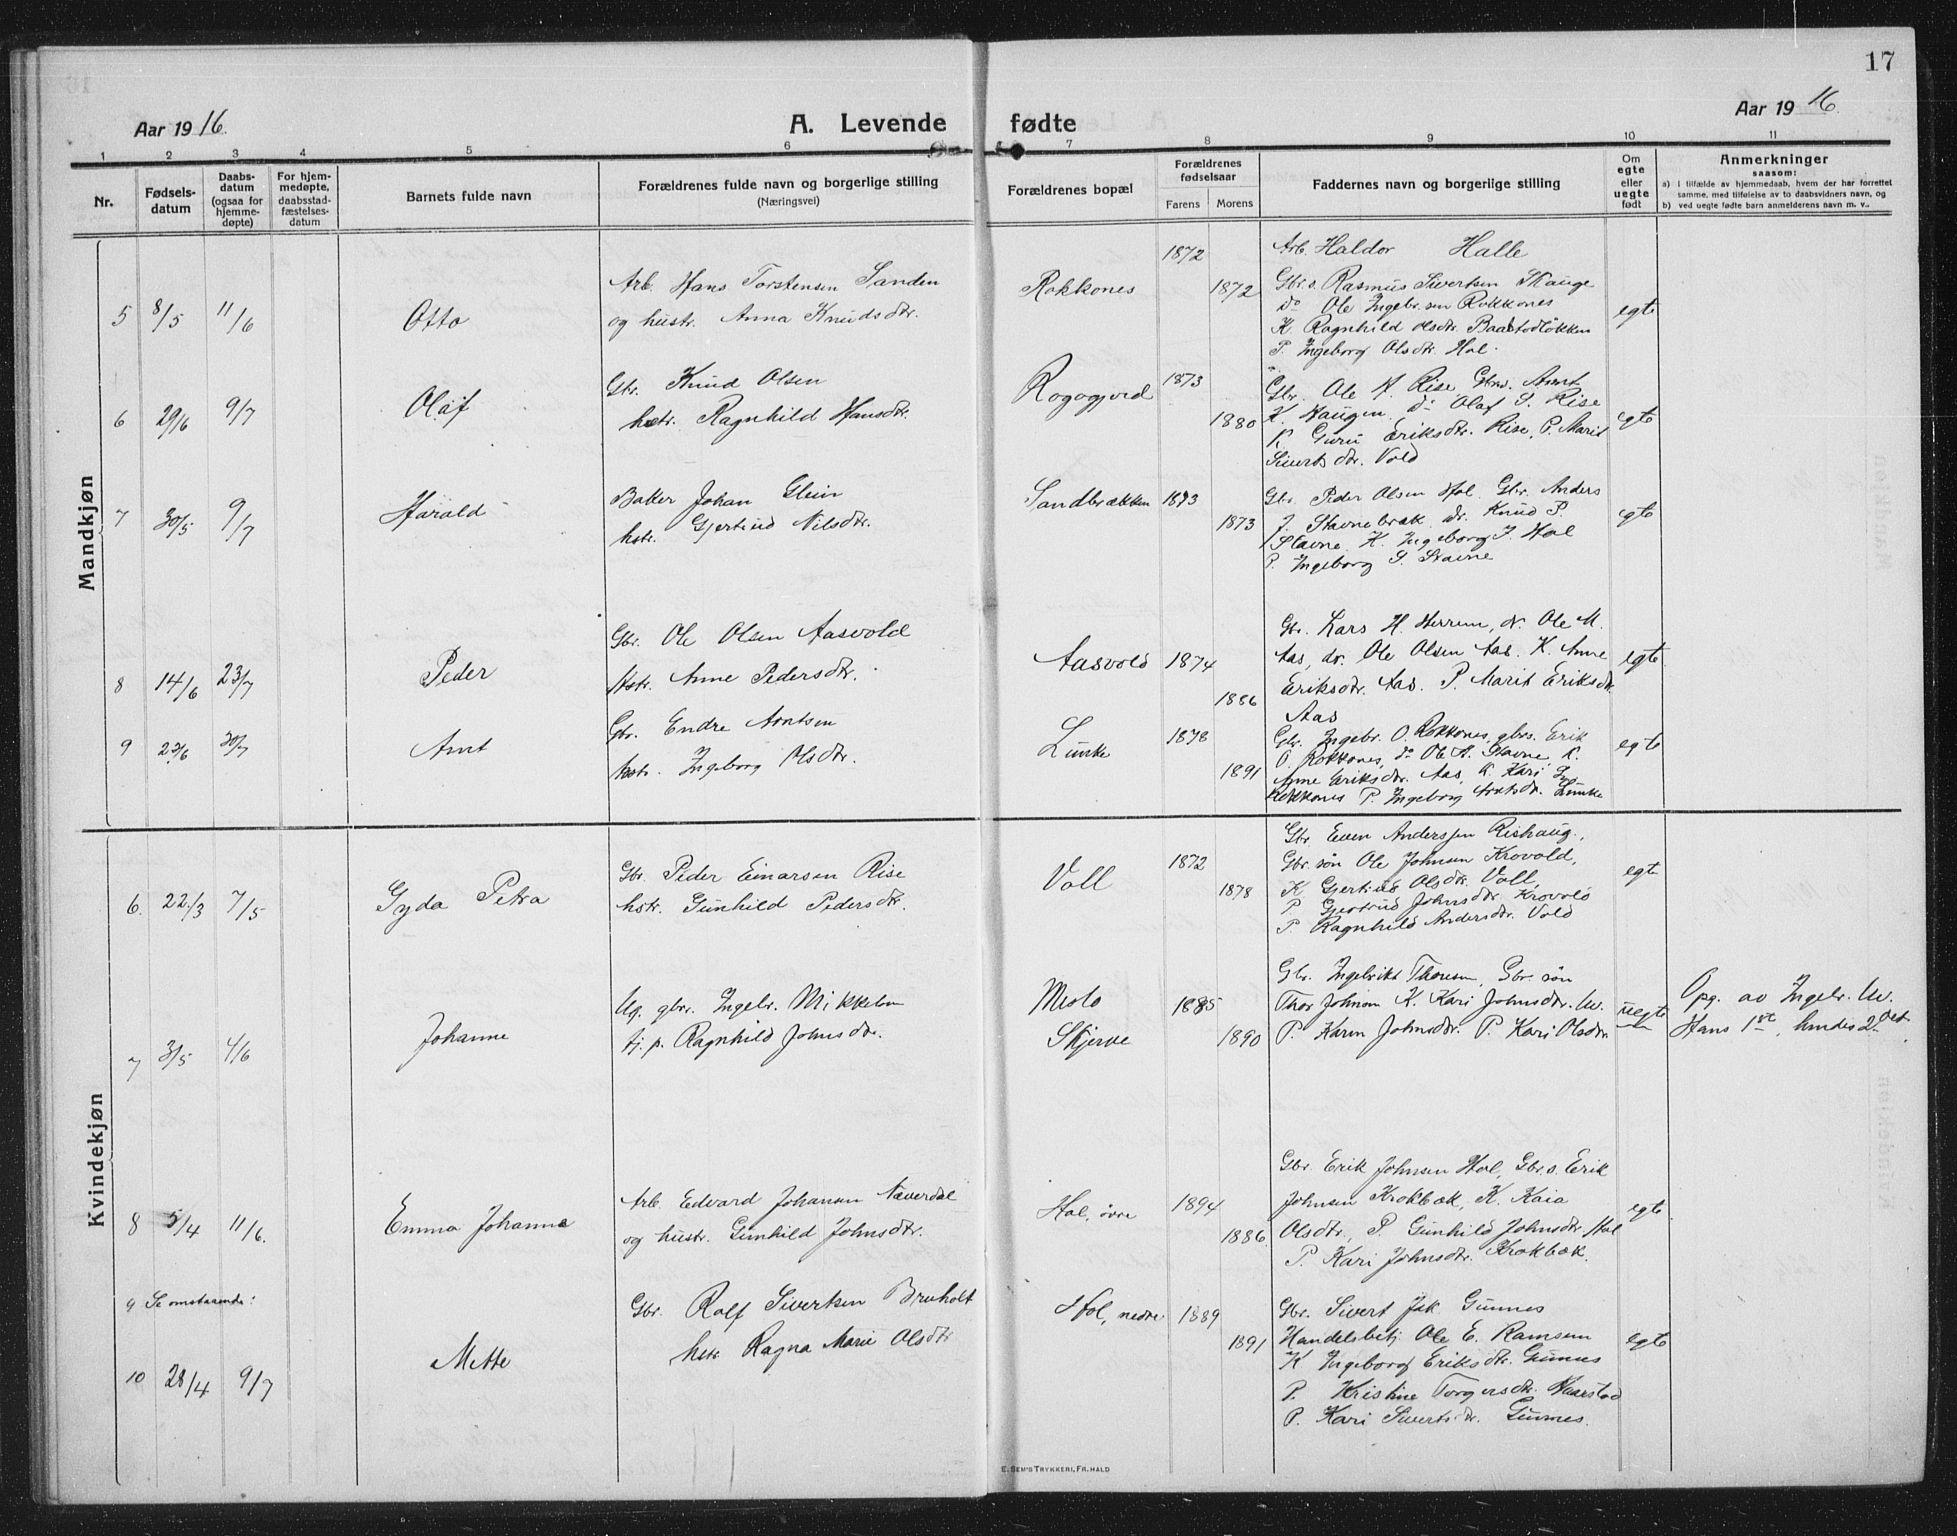 17
Aar 1916.
A. Levende fødte
Aar 1916.
1 2 3 4 5 6 7 8 9 10 11
Nr.
Fødsels-
datum
Daabs-
datum
(ogsaa for
hjemme-
døpte)
For hjem-
medøpte,
daabsstad-
fæstelses-
datum
Barnets fulde navn
Forældrenes fulde navn og borgerlige stilling
(Næringsvei)
Forældrenes bopæl
Forældrenes
fødselsaar
Farens Morens
Faddernes navn og borgerlige stilling
Om
egte
eller
uegte
født
Anmerkninger
saasom:
a) i tilfælde av hjemmedaab, hvem der har forrettet
samme, med tilføielse av to daabsvidners navn, og
b) ved uegte fødte barn anmelderens navn m. v..
Mandkjøn
5 8/5 11/6 Otto
Arb. Hans Torstensen Sanden
og hustr. Anna Knudsdtr.
Rokkones 1872 1872
Arb. Haldor Halle
Gbr.s. Rasmus Sivertsen Skauge
do Ole Ingebr.sen Rokkones
K. Ragnhild Olsdtr. Baardstodløkken
P. Ingeborg Olsdtr. Hol.
egte
6 29/6 9/7 Olaf
Gbr. Knud Olsen
hstr. Ragnhild Hansdtr.
Rogogjerd 1873 1880
Gbr. Ole A. Rise, Gbrs. Arnt
K. Haugen, do Olaf S. Rise
K Guru Eriksdtr. Rise, P. Marit
Sivertsdtr. Vold
egte
7 30/5 9/7 Harald
Baker Johan Glein
hstr. Gjertrud Nilsdtr.
Sandbrækken 1873 1873
Gbr. Peder Olsen Hol, Gbr. Anders
J. Stavnebræk, do. Knud P.
Stavne, K. Ingeborg J. Hol
P. Ingeborg S. Stavne
egte
8 14/6 23/7 Peder
Gbr. Ole Olsen Aasvold
Hstr. Anne Pedersdtr.
Aasvold 1874 1886
Gbr. Lars H. Herrem, do. Ole M.
Aas, do. Ole Olsen Aas. K. Anne
Eriksdtr. Aas. P. Marit Eriksdtr.
Aas
egte
9 23/6 30/7 Arnt
Gbr. Endre Arntsen
hstr. Ingeborg Olsdtr.
Lunke 1878 1891
Gbr. Ingebr. O. Rokkones, gbrs. Erik
O. Rokkones, do Ole A. Stavne, K.
Anne Eriksdtr. Aas, K. Kari
Rokkones P. Ingeborg Arntsdtr. Lunke
egte
Kvindekjøn
6. 22/3 7/5 Gyda Petra
Gbr. Peder Einarsen Rise
hstr. Gunhild Pedersdtr.
Voll 1872 1878
Gbr. Even Anderssen Rishaug,
Gbr. søn Ole Johnsen Krovold,
K Gjertrud Olsdtr. Voll
P Gjertrud Johnsdtr. Krovold
P. Ragnhild Andersdtr. Vold
egte
7 3/5 4/6 Johanne
Ug. gbr. Ingebr. Mikkelsen
tj. p. Ragnhild Johnsdtr.
Meslo
Skjerve
1885 1890
Gbr. Ingebrikt Thoresen, Gbr. søn
Thor Johnsen K. Kari Johnsdtr.
P. Karen Johnsdtr. P. Kari Olsdtr.
uegte
Opg. av Ingebr.
Hans 1ste, hendes 2det
8 5/4 11/6. Emma Johanne
Arb. Edvard Johansen Næverdal
og hustr. Gunhild Johnsdtr.
Hol, øvre 1894 1886.
Gbr. Erik Johnsen Hol, Gbr.s. Erik
Johnsen Krokbæk, K. Kaia
Olsdtr., P. Gunhild Johnsdtr. Hol
P. Kari Johnsdtr. Krokbæk.
egte
9 Se omstaaende!
10 28/4 9/7 Mette
Gbr. Rolf Sivertsen Bruholt
hstr. Ragna Marie Olsdtr
Hol, nedre 1889 1891
Gbr. Sivert Jak. Gunnes
Handelsbetj. Ole E. Ramsem
K Ingeborg Eriksdtr. Gunnes
P. Kristine Torgersdtr. Haarstad
P. Kari Sivertsdtr. Gunnes.
egte
E. SEM'S TRYKKERI, FR. HALD